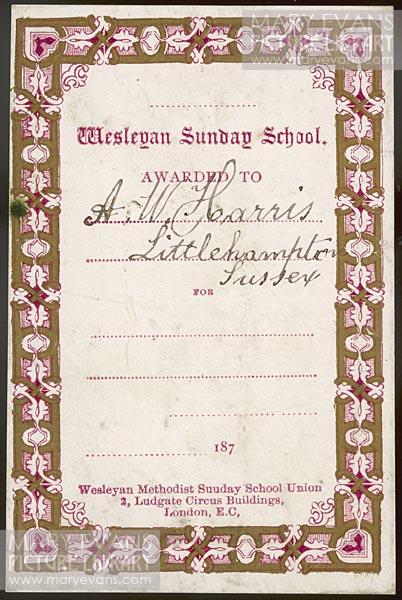 MARY EVANS
PICTURE LIBRARY
www.maryevans.com
Wesleyan Sunday School.
AWARDED TO
A. W. Harris
Littlehampton
Sussex
FOR
187
Wesleyan Methodist Sunday School Union
2, Ludgate Circus Buildings,
London, E.C,
MARY EVANS
PICTURE LIBRARY
www.maryevans.com